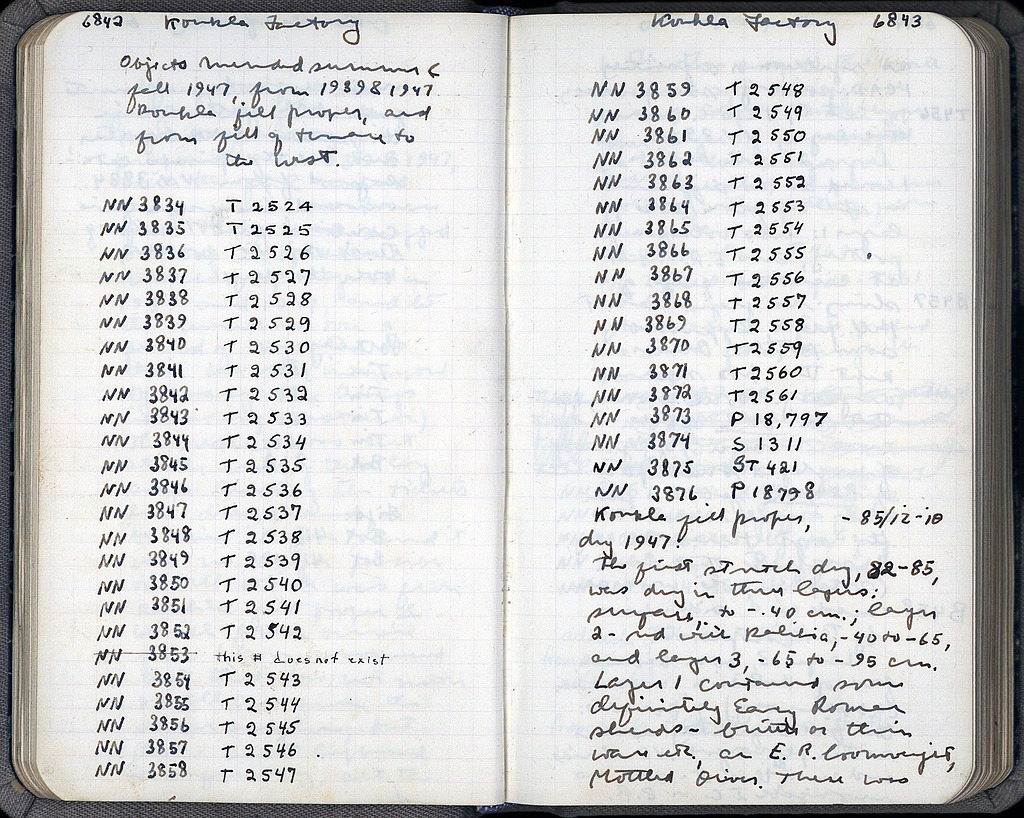 6842 Koukla Factory
Objects mended summer &
fall 1947, from 1939 & 1947
Koukla fill proper, and
from fill of terrace to
the East.
NN 3834 T 2524
NN 3835 T 2525
NN 3836 T 2526
NN 3837 T 2527
NN 3838 T 2528
NN 3839 T 2529
NN 3840 T 2530
NN 3841 T 2531
NN 3842 T 2532
NN 3843 T 2533
NN 3844 T 2534
NN 3845 T 2535
NN 3846 T 2536
NN 3847 T 2537
NN 3848 T 2538
NN 3849 T 2539
NN 3850 T 2540
NN 3851 T 2541
NN 3852 T 2542
NN 3853 this # does not exist
NN 3854 T 2543
NN 3855 T 2544
NN 3856 T 2545
NN 3857 T 2546
NN 3858 T 2547
Koukla Factory 6843
NN 3859 T 2548
NN 3860 T 2549
NN 3861 T 2550
NN 3862 T 2551
NN 3863 T 2552
NN 3864 T 2553
NN 3865 T 2554
NN 3866 T 2555
NN 3867 T 2556
NN 3868 T 2557
NN 3869 T 2558
NN 3870 T 2559
NN 3871 T 2560
NN 3872 T 2561
NN 3873 P 18,797
NN 3874 S 1311
NN 3875 ST 421
NN 3876 P 18798
Koukla fill proper, - 85/ΙΖ-ΙΘ
dug 1947.
The first stretch dug, 82-85,
was dug in three layers:
surface, to -.40 cm.; layer
2 -, -40 to -65,
and layer 3, -65 to -95 cm.
Layer 1 contained some
definitely Early Roman
sherds - brittle or thin
ware etc., an E. R.
Mottled. There was